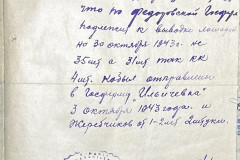 что по Федоровской Госферм
подлежит к выводке лошадей
но 30 октября 1943г. не
35шт а 31шт тж КК
4шт. Кобыл отправлены
в Госферму "Ильичевка"
3 октября 1943 года. и
Жеребчиков от 1-2лет 2штуки.